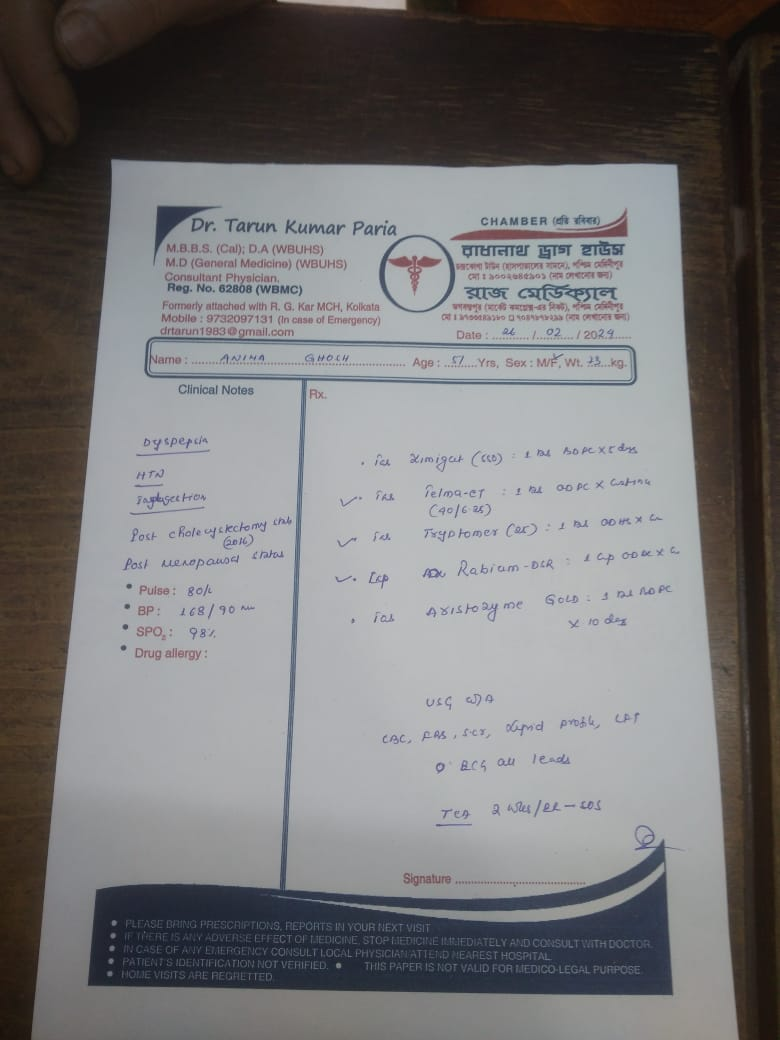 Dr. Tarun Kumar Paria
M.B.B.S. (Cal); D.A (WBUHS)
M.D (General Medicine) (WBUHS)
Consultant Physician.
Reg. No. 62808 (WBMC)
Formerly attached with R. G. Kar MCH, Kolkata
Mobile : 9732097131 (In case of Emergency)
drtarun1983@gmail.com
CHAMBER (প্রতি রবিবার)
রাধানাথ ড্রাগ হাউস
চন্দ্রকোণা টাউন (হাসপাতালের সামনে), পশ্চিম মেদিনীপুর
মোঃ ৯০০২৬৪৫৯০১ (নাম লেখানোর জন্য)
রাজ মেডিক্যাল
পশ্চিম মেদিনীপুর
(নাম লেখানোর জন্য)
Date : 26 / 02 / 2024
Name : ANIMA GHOSH Age : 57 Yrs, Sex : M/F, Wt. 73 kg.
Clinical Notes
Dyspepsia
HTN
Post cholecystectomy status
(2016)
Post menopausal status
Pulse : 80/
BP : 168/90
SPO2 : 98%
Drug allergy :
Rx.
Tab (550) : 1 tab BDPC x 5 days
Tab Telma-CT : 1 tab ODPC x
(40/6.25)
Tab Tryptomer (25) : 1 tab ODHS x
Cap Rabium-DSR : 1 cap x
Tab Aristozyme GOLD : 1 tab BDPC
x 10 days
USG W/A
CBC, FBS, SCr, Lipid profile, LFT
ECG all leads
TCA 2 wks/ - SOS
Signature
PLEASE BRING PRESCRIPTIONS, REPORTS IN YOUR NEXT VISIT
IF THERE IS ANY ADVERSE EFFECT OF MEDICINE, STOP MEDICINE IMMEDIATELY AND CONSULT WITH DOCTOR.
IN CASE OF ANY EMERGENCY CONSULT LOCAL PHYSICIAN/ATTEND NEAREST HOSPITAL.
PATIENT'S IDENTIFICATION NOT VERIFIED. THIS PAPER IS NOT VALID FOR MEDICO-LEGAL PURPOSE.
HOME VISITS ARE REGRETTED.